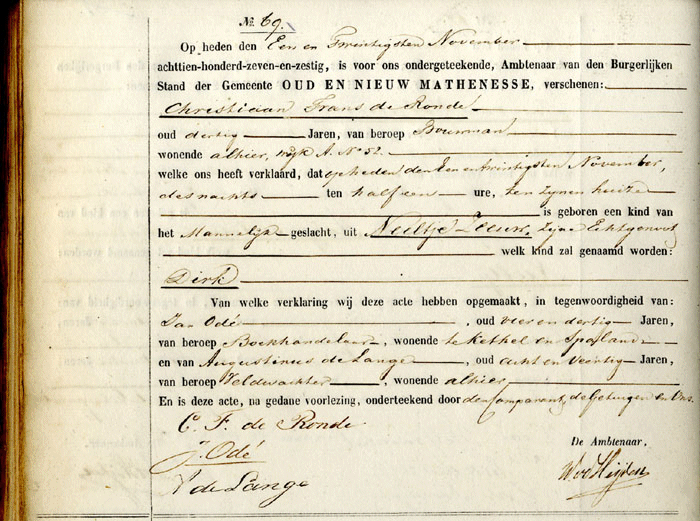 No. 69.
Op heden den Een en Twintigsten November
achttien-honderd-zeven-en-zestig, is voor ons ondergeteekende, Ambtenaar van den Burgerlijken
Stand der Gemeente OUD EN NIEUW MATHENESSE, verschenen:
Christiaan Frans de Ronde
oud dertig Jaren, van beroep Bouwman
wonende alhier, wijk A. No 52.
welke ons heeft verklaard, dat op heden den Een en twintigsten November,
des nachts ten half een ure, ten zynen huize
is geboren een kind van
het Mannelijk geslacht, uit Neeltje Leeuw, zyne Echtgenoot
welk kind zal genaamd worden:
Dirk
Van welke verklaring wij deze acte hebben opgemaakt, in tegenwoordigheid van:
Jan Odé, oud vier en dertig Jaren,
van beroep Boekhandelaar, wonende te Kethel en Spaland
en van Augustinus de Lange, oud acht en veertig Jaren,
van beroep Veldwachter, wonende alhier,
En is deze acte, na gedane voorlezing, onderteekend door den Comparant, de Getuigen en Ons.
C. F. de Ronde
De Ambtenaar,
J. Odé
A de Lange